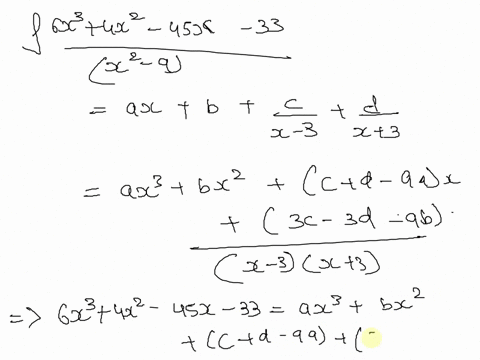 ∫ 6x³+4x² - 45x - 33
(x²-9)
= ax + b + c/(x-3) + d/(x+3)
= ax³ + bx² + (c+d-9a)x
+ (3c - 3d - 9b).
(x-3)(x+3)
=> 6x³+4x² - 45x - 33 = ax³ + bx²
+ (c+d-9a) + (